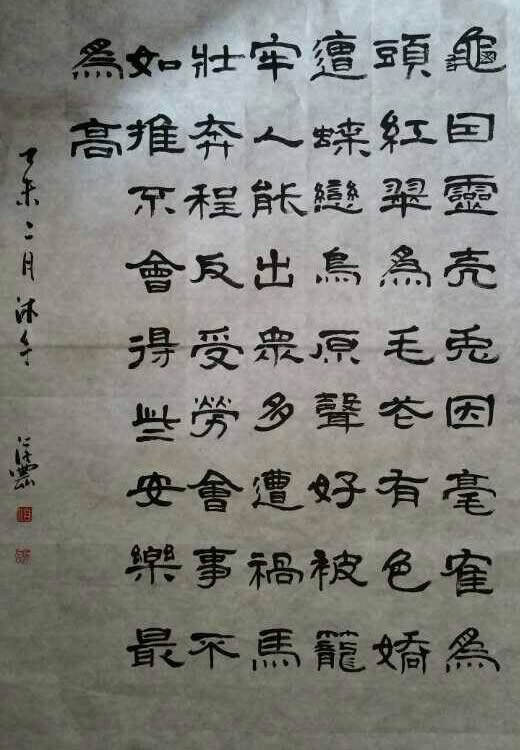 龜囙靈壳兎因毫隺爲
頭紅翠爲毛花有色嬌
遭蝶戀鳥原聲好被籠
牢人能出衆多遭禍馬
壯奔程反受勞會事不
如推不會得些安樂最
爲高
二月沐手